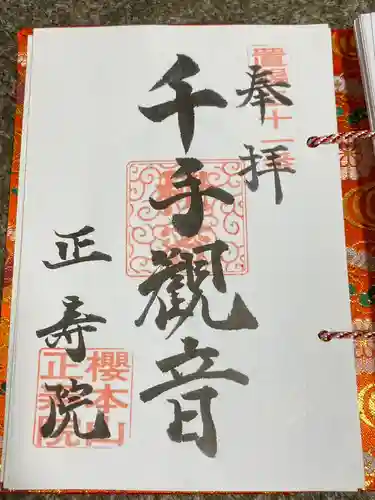 置賜 十一番
奉拝
千手觀音
正寿院
櫻本山
正寿院